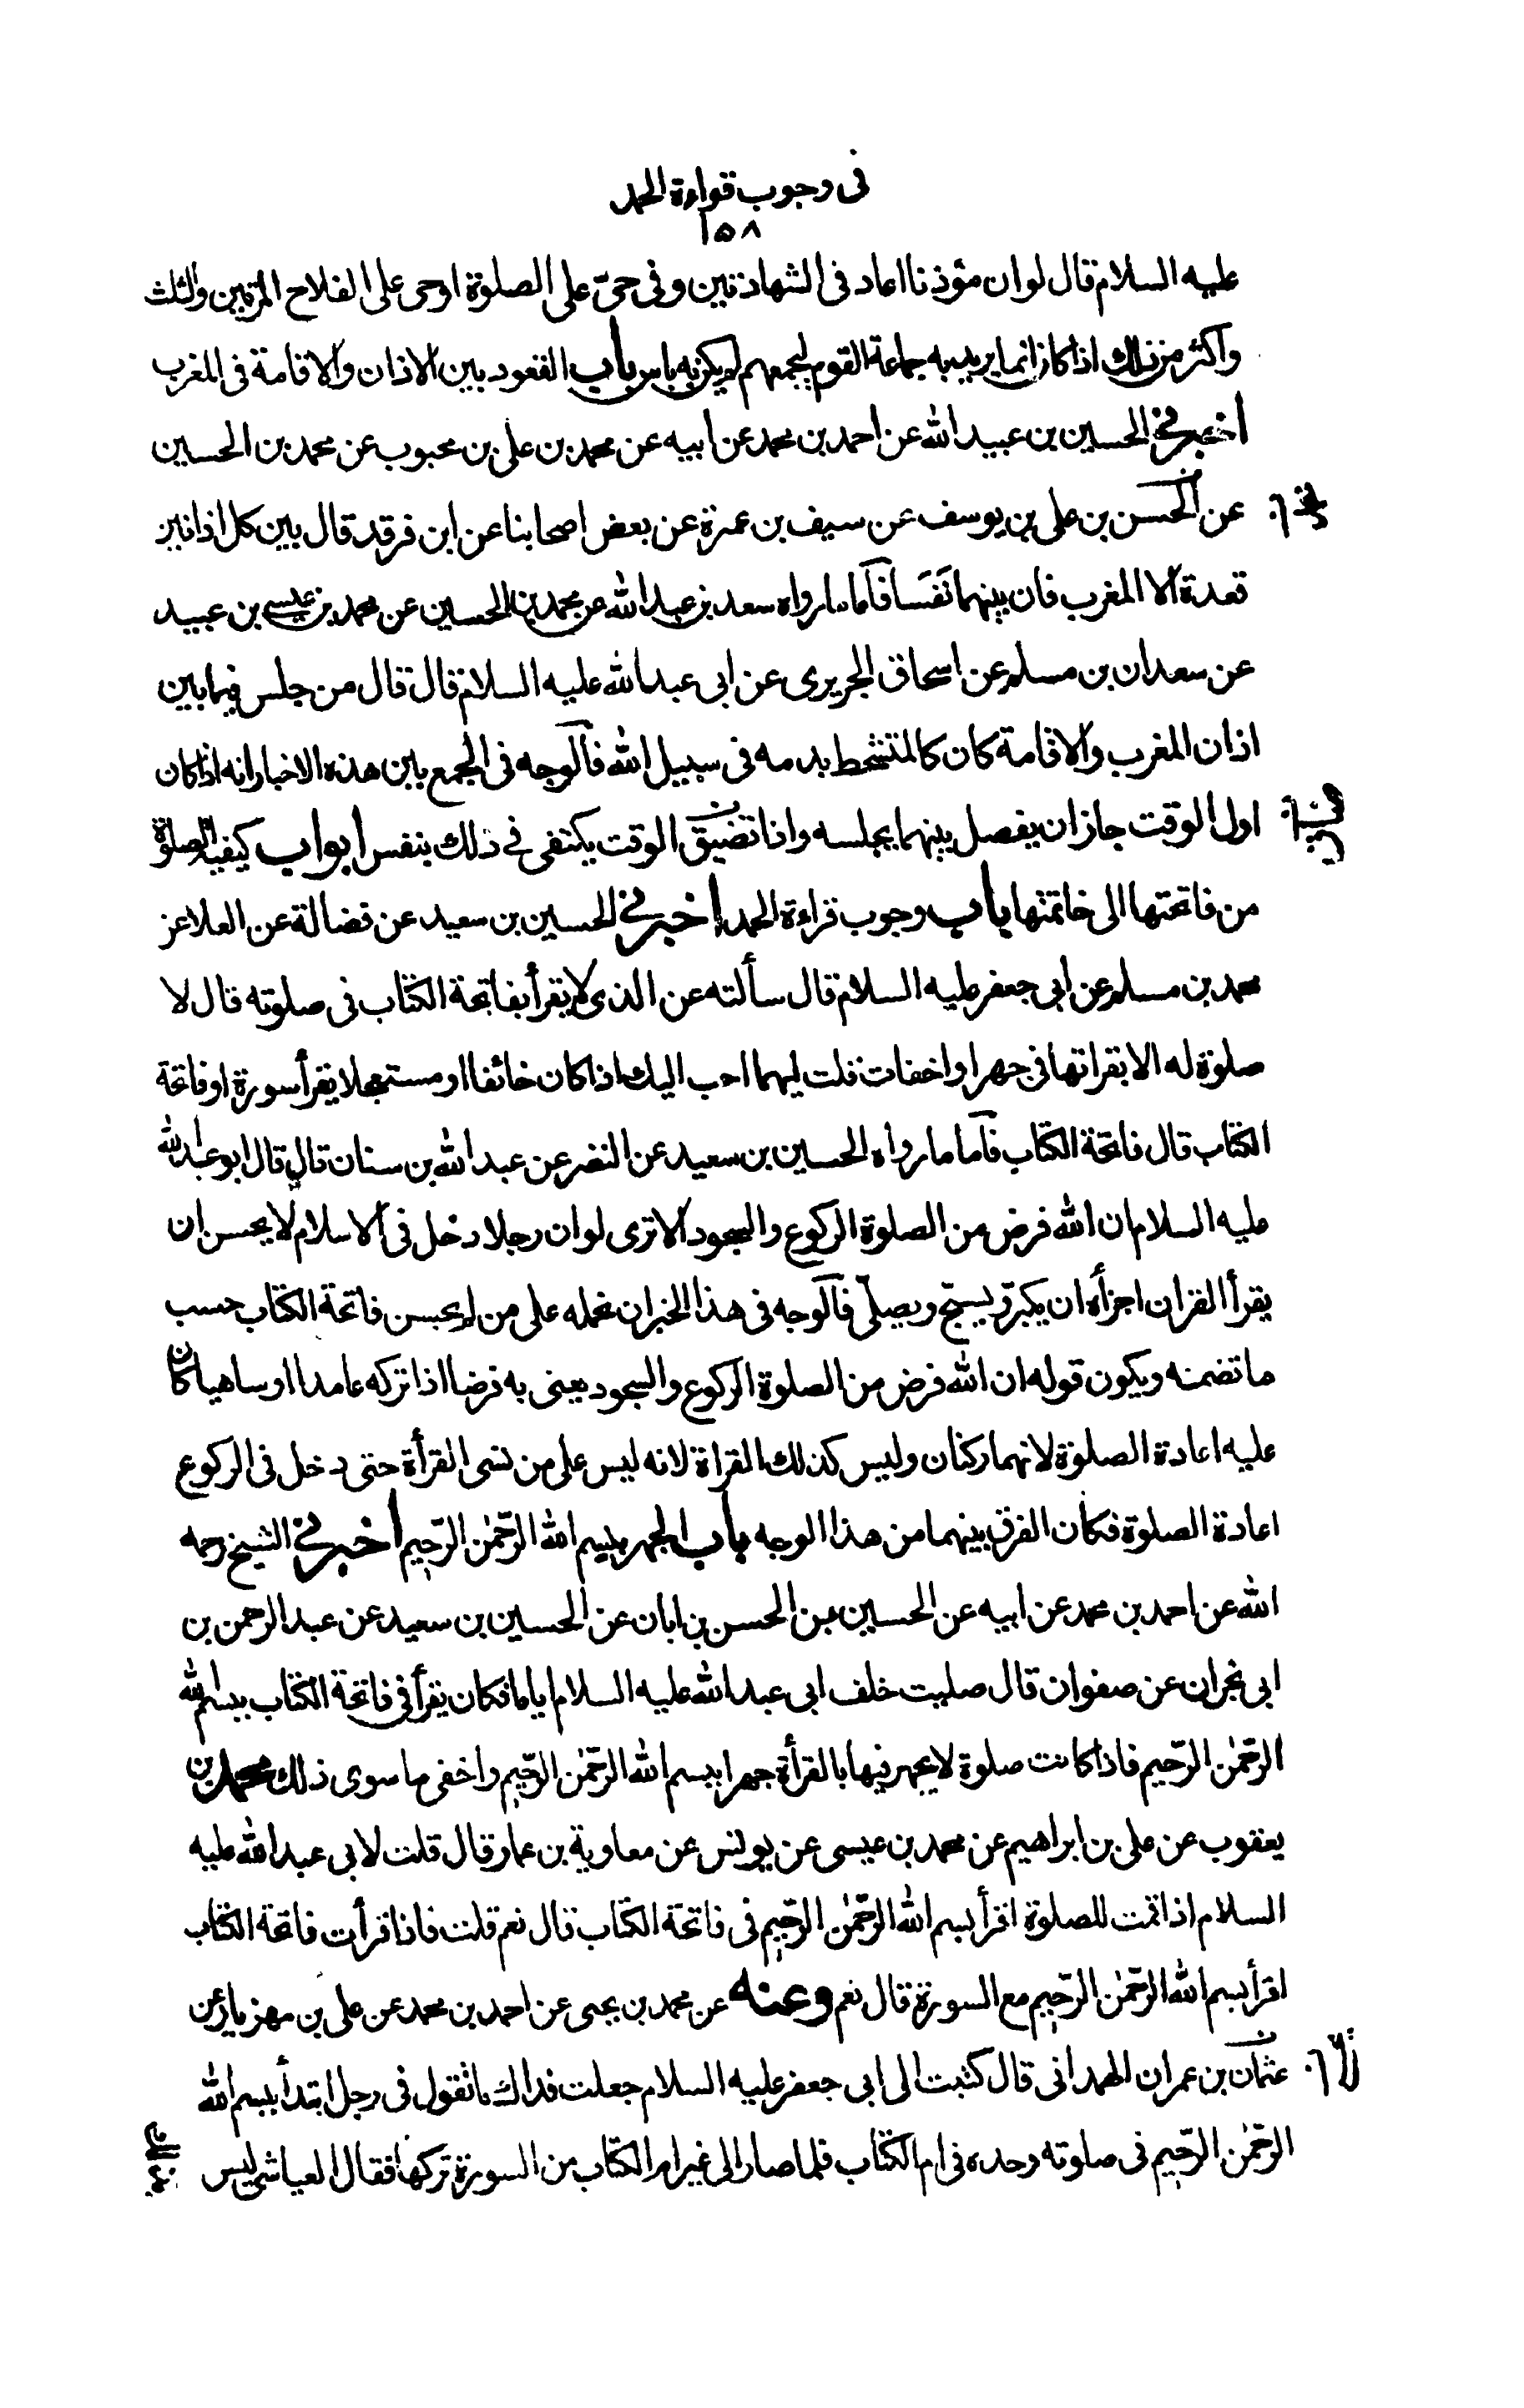 فى وجوب قواءة الحمد
١٥٨
عليه السلام قال لو ان مؤذنا اعاد فى الشهادتين و فى حىّ على الصلوة او حى على الفلاح المرتين والثلث
واكثر من ذلك اذا كان انما يريد به جماعة القوم ليجمعهم لم يكن به باس باب القعود بين الاذان والاقامة فى المغرب
اخبرنى الحسين بن عبيد الله عن احمد بن محمد عن ابيه عن محمد بن على بن محبوب عن محمد بن الحسين
عن الحسن بن على بن يوسف عن سيف بن عمرة عن بعض اصحابنا عن ابن فرقد قال بين كل اذانين
قعدة الا المغرب فان بينهما نَفَسَا فاما ما رواه سعد بن عبد الله عن محمد بن الحسين عن محمد بن عيسى بن عبيد
عن سعدان بن مسلم عن اسحاق الجريرى عن ابى عبد الله عليه السلام قال قال من جلس فيما بين
اذان المغرب والاقامة كان كالمتشحط بدمه فى سبيل الله فالوجه فى الجمع بين هذه الاخبار انه اذا كان
اول الوقت جاز ان يفصل بينهما بجلسه واذا تضيّق الوقت يكتفى فى ذلك بنفس ابواب كيفية الصلوة
من فاتحتها الى خاتمتها باب وجوب قراءة الحمد اخبرنى الحسين بن سعيد عن فضالة عن العلا عن
محمد بن مسلم عن ابى جعفر عليه السلام قال سألته عن الذى لا يقرأ بفاتحة الكتاب فى صلوته قال لا
صلوة له الا بقراتها فى جهر او اخفات قلت ايهما احب اليك اذا كان خائفا او مستعجلا يقرأ سورة او فاتحة
الكتاب قال فاتحة الكتاب فاما ما رواه الحسين بن سعيد عن النضر عن عبد الله بن سنان قال قال ابو عبد الله
عليه السلام ان الله فرض من الصلوة الركوع والسجود الا ترى لو ان رجلا دخل فى الاسلام لا يحسن ان
يقرأ القران اجزأه ان يكبر ويسبّح ويصلّى فالوجه فى هذا الخبر ان نحمله على من لم يحسن فاتحة الكتاب حسب
ما تضمنه ويكون قوله ان الله فرض من الصلوة الركوع والسجود يعنى به فرضا اذا تركه عامدا او ساهيا كان
عليه اعادة الصلوة لانهما ركنان وليس كذلك القراة لانه ليس على من نسى القرأة حتى دخل فى الركوع
اعادة الصلوة فكان الفرق بينهما من هذا الوجه باب الجهر ببسم الله الرّحمٰن الرّحيم اخبرنى الشيخ رحمه
الله عن احمد بن محمد عن ابيه عن الحسين بن الحسن بن ابان عن الحسين بن سعيد عن عبد الرحمن بن
ابى نجران عن صفوان قال صليت خلف ابى عبد الله عليه السلام اياما فكان يقرأ فى فاتحة الكتاب ببسم الله
الرّحمٰن الرّحيم فاذا كانت صلوة لا يجهر فيها بالقرأة جهر ببسم الله الرّحمٰن الرّحيم واخفى ما سوى ذلك محمد بن
يعقوب عن على بن ابراهيم عن محمد بن عيسى عن يونس عن معاوية بن عمار قال قلت لابى عبد الله عليه
السلام اذا قمت للصلوة اقرأ بسم الله الرّحمٰن الرّحيم فى فاتحة الكتاب قال نعم قلت فاذا قرأت فاتحة الكتاب
اقرأ بسم الله الرّحمٰن الرّحيم مع السورة قال نعم وعنه عن محمد بن يحيى عن احمد بن محمد عن على بن مهزيار عن
عثمان بن عمران الهمدانى قال كتبت الى ابى جعفر عليه السلام جعلت فداك ما تقول فى رجل ابتدأ ببسم الله
الرّحمٰن الرّحيم فى صلوته وحده فى ام الكتاب فلما صار الى غير ام الكتاب من السورة تركها فقال العياشى ليس